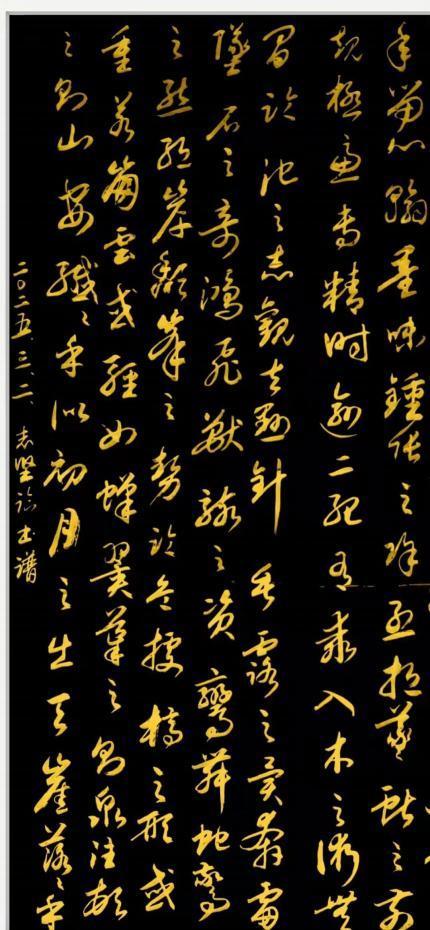 年留心翰墨味鍾張之餘烈挹羲獻之前
規極慮專精時逾二紀有乖入木之術無
間臨池之志觀夫懸針垂露之異奔雷
墜石之奇鴻飛獸駭之資鸞舞蛇驚
之態絕岸頹峯之勢臨危據槁之形或
重若崩雲或輕如蟬翼導之則泉注頓
之則山安纖々乎似初月之出天崖落々乎
二〇二五.三.二、志堅臨書譜